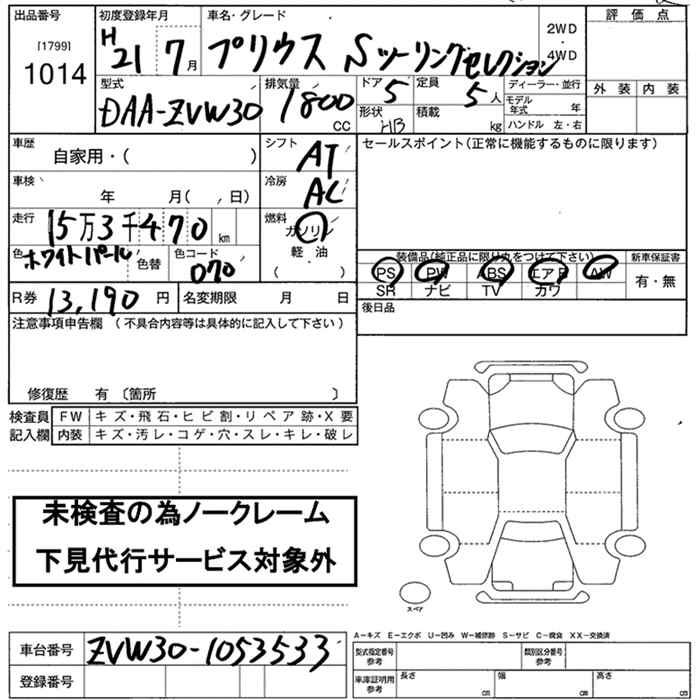 出品番号
[1799]
1014
初度登録年月
H21 7月
車名・グレード
プリウス Sツーリングセレクション
2WD
・
4WD
評価点
外装 内装
型式
DAA-ZVW30
排気量
1800
CC
ドア
5
形状
HB
定員
5人
積載
kg
ディーラー・並行
モデル年式 年
ハンドル 左・右
車歴
自家用・( )
シフト
AT
セールスポイント(正常に機能するものに限ります)
車検
年 月( , 日)
冷房
AC
走行
15万3千470km
燃料
ガソリン
軽油
( )
色
ホワイトパール
色替
色コード
070
装備品(純正品に限り丸をつけて下さい)
PS PW ABS エアB AW
SR ナビ TV カワ
新車保証書
有・無
R券 13,190円
名変期限 月 日
後日品
注意事項申告欄 (不具合内容等は具体的に記入して下さい)
修復歴 有 〔箇所 〕
検査員記入欄
FW キズ・飛石・ヒビ割・リペア跡・X要
内装 キズ・汚レ・コゲ・穴・スレ・キレ・破レ
未検査の為ノークレーム
下見代行サービス対象外
スペア
A−キズ E−エクボ U−凹み W−補修跡 S−サビ C−腐食 XX−交換済
車台番号 ZVW30-1053533
登録番号
型式指定番号
参考
類別区分番号
参考
車庫証明用
参考
長さ cm
幅 cm
高さ cm